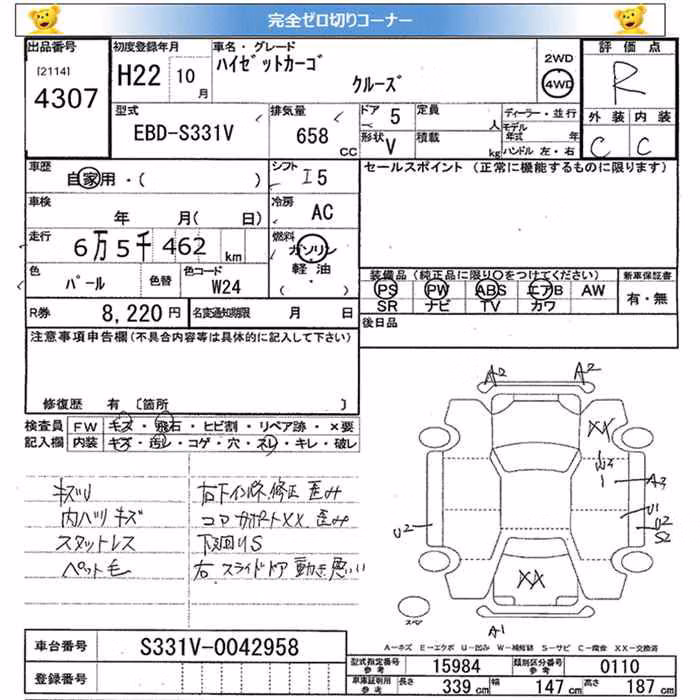 完全ゼロ切りコーナー
出品番号 [2114] 4307
初度登録年月 H22 10月
車名・グレード ハイゼットカーゴ クルーズ
2WD 4WD
評価点 R
型式 EBD-S331V
排気量 658 CC
ドア 5
形状 V
定員 人
積載 kg
ディーラー・並行
モデル年式 年
ハンドル 左・右
外装 C
内装 C
車歴 自家用・( )
シフト I5
セールスポイント (正常に機能するものに限ります)
車検 年 月( 日)
冷房 AC
走行 6万5千462 km
燃料 ガソリン 軽油 ( )
色 パール 色替
色コード W24
装備品(純正品に限り○をつけてください)
PS PW ABS エアB AW
SR ナビ TV カワ
新車保証書 有・無
R券 8,220円
名変通知期限 月 日
後日品
注意事項申告欄(不具合内容等は具体的に記入して下さい)
修復歴 有 〔箇所 〕
検査員 FW キズ・飛石・ヒビ割・リペア跡・×要
記入欄 内装 キズ・汚レ・コゲ・穴・スレ・キレ・破レ
キズU 右下インパネ修正 歪み
内ハリキズ コアサポートXX 歪み
スタットレス 下回りS
ペット毛 右スライドドア動き悪い
A2 A2
XX
W3
1
A3
U1
U2
U2
S2
XX
スペア
A1
A-キズ E-エクボ U-凹み W-補修跡 S-サビ C-腐食 XX-交換済
車台番号 S331V-0042958
型式指定番号 参考 15984
類別区分番号 参考 0110
登録番号
車庫証明用 参考 長さ 339cm 幅 147cm 高さ 187cm